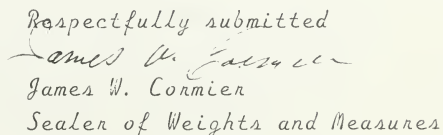 Respectfully submitted
James W. Cormier
James W. Cormier
Sealer of Weights and Measures